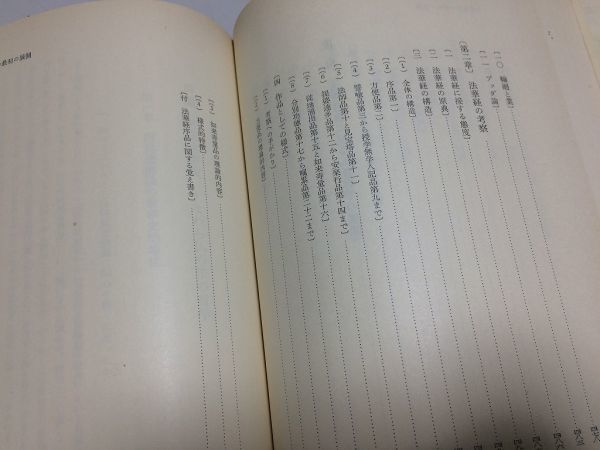 〔一〇　輪廻と業〕
〔一一　アッダ論〕
〔第二章〕　法華経の考察
〔一　法華経に接する態度〕
〔二　法華経の原典〕
〔三　法華経の構造〕
〔1〕　全体の構造〕
〔2〕　序品第一〕
〔3〕　方便品第二〕
〔4〕　譬喩品第三から授学無学人記品第九まで〕
〔5〕　法師品第十と見宝塔品第十一〕
〔6〕　提婆達多品第十二から安楽行品第十四まで〕
〔7〕　従地涌出品第十五と如来寿量品第十六〕
〔8〕　分別功徳品第十七から嘱累品第二十二まで〕
〔四　作品としての様式〕
〔1〕　考察への手がかり〕
〔2〕　方便品の理論的内容〕
〔3〕　如来寿量品の理論的内容〕
〔4〕　様式的特徴〕
〔付　法華経序品に関する覚え書き〕
最初の展開